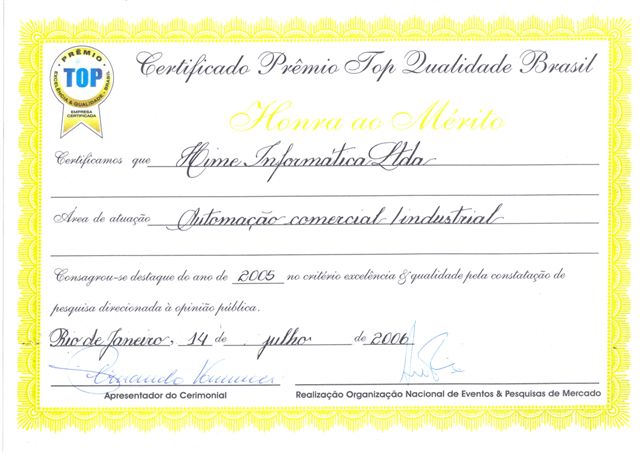 PRÊMIO
TOP
EXCELÊNCIA & QUALIDADE - BRASIL
EMPRESA
CERTIFICADA
Certificado Prêmio Top Qualidade Brasil
Honra ao Mérito
Certificamos que Hime Informática Ltda
Área de atuação Automação comercial / industrial
Consagrou-se destaque do ano de 2005 no critério excelência & qualidade pela constatação de
pesquisa direcionada à opinião pública.
Rio de Janeiro, 14 de julho de 2006
Apresentador do Cerimonial
Realização Organização Nacional de Eventos & Pesquisas de Mercado